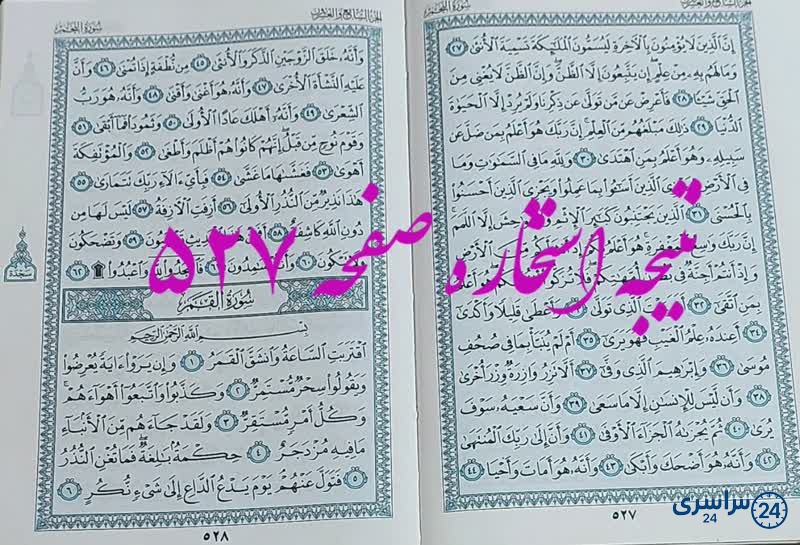 الجزء السابع والعشرون
سورة النجم
إن الذين لا يؤمنون بالآخرة ليسمون الملائكة تسمية الأنثى ٢٧
وما لهم به من علم إن يتبعون إلا الظن وإن الظن لا يغني من
الحق شيئا ٢٨ فأعرض عن من تولى عن ذكرنا ولم يرد إلا الحيوة
الدنيا ٢٩ ذلك مبلغهم من العلم إن ربك هو أعلم بمن ضل عن
سبيله وهو أعلم بمن اهتدى ٣٠ ولله ما في السموات وما
في الأرض الذين أساءوا بما عملوا ويجزي الذين أحسنوا
بالحسنى ٣١ الذين يجتنبون كبائر الإثم إلا اللمم
إن ربك واسع المغفرة هو أعلم الأرض
وإذ أنتم أجنة في أمهاتكم فلا تزكوا هو أعلم
بمن اتقى ٣٢ الذي تولى وأعطى قليلا وأكدى
٣٤ أعنده علم الغيب فهو يرى ٣٥ أم لم ينبأ بما في صحف
موسى ٣٦ وإبراهيم الذي وفى ٣٧ ألا تزر وازرة وزر أخرى
٣٨ وأن ليس للإنسان إلا ما سعى ٣٩ وأن سعيه سوف
يرى ٤٠ ثم يجزاه الجزاء الأوفى ٤١ وأن إلى ربك المنتهى
٤٢ وأنه هو أضحك وأبكى ٤٣ وأنه هو أمات وأحيا ٤٤
٥٢٧
الجزء السابع والعشرون
سورة النجم
وأنه خلق الزوجين الذكر والأنثى ٤٥ من نطفة إذا تمنى ٤٦ وأن
عليه النشأة الأخرى ٤٧ وأنه هو أغنى وأقنى ٤٨ وأنه هو رب
الشعرى ٤٩ وأنه أهلك عادا الأولى ٥٠ وثمود فما أبقى ٥١
وقوم نوح من قبل إنهم كانوا هم أظلم وأطغى ٥٢ والمؤتفكة
أهوى ٥٣ فغشاها ما غشى ٥٤ فبأي آلاء ربك تتمارى ٥٥
هذا نذير من النذر الأولى ٥٦ أزفت الآزفة ٥٧ ليس لها من
دون الله كاشفة ٥٨ أفمن هذا الحديث تعجبون ٥٩ وتضحكون
ولا تبكون ٦٠ وأنتم سامدون فاسجدوا لله واعبدوا ٦٢
سجدة
سورة القمر
بسم الله الرحمن الرحيم
اقتربت الساعة وانشق القمر ١ وإن يروا آية يعرضوا
ويقولوا سحر مستمر ٢ وكذبوا واتبعوا أهواءهم
وكل أمر مستقر ٣ ولقد جاءهم من الأنباء
ما فيه مزدجر ٤ حكمة بالغة فما تغن النذر
٥ فتول عنهم يوم يدع الداع إلى شيء نكر ٦
٥٢٨
نتیجه استخاره صفحه ۵۲۷
سراسری 24
24